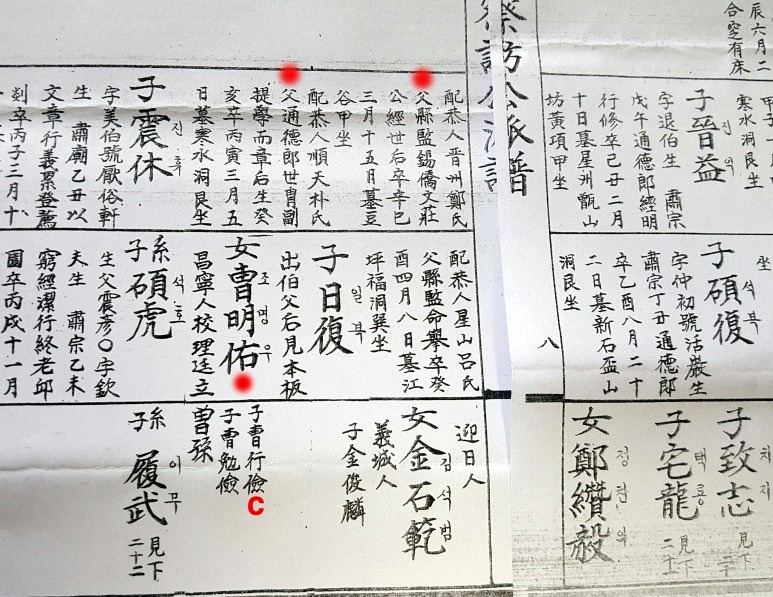 辰六月二
合窆有床
寒水洞艮坐
子晉益
진익
字退伯生 肅宗
戊午通德郎經明
行修卒己丑二月
十日墓星州甑山
坊黃項甲坐
坐
子碩復
석복
字仲初號活巖生
肅宗丁丑通德郎
卒乙酉八月二十
二日墓新石盃山
洞艮坐
子致志
치지
見下
子宅龍
택룡
見下
女鄭纘毅
정찬의
察訪公派譜
八
配恭人晋州鄭氏
父縣監錫僑文莊
公經世后卒辛巳
三月十五日墓豆
谷甲坐
配恭人順天朴氏
父通德郎世冑副
提學而章后生癸
亥卒丙寅三月五
日墓寒水洞艮坐
子震休
진휴
字美伯號厭俗軒
生 肅廟乙丑以
文章行義累登薦
剡卒丙子三月十
配恭人星山呂氏
父縣監命擧卒癸
酉四月八日墓江
坪福洞巽坐
子日復
일복
出伯父后見本板
女曺明佑
조명우
昌寧人校理廷立
曾孫
系子碩虎
석호
生父震彥○字欽
夫生 肅宗乙未
窮經潔行終老邱
園卒丙戌十一月
迎日人
女金石範
김석범
義城人
子金俊麟
子曺行儉
C
子曺勉儉
系子履武
이무
見下二十二